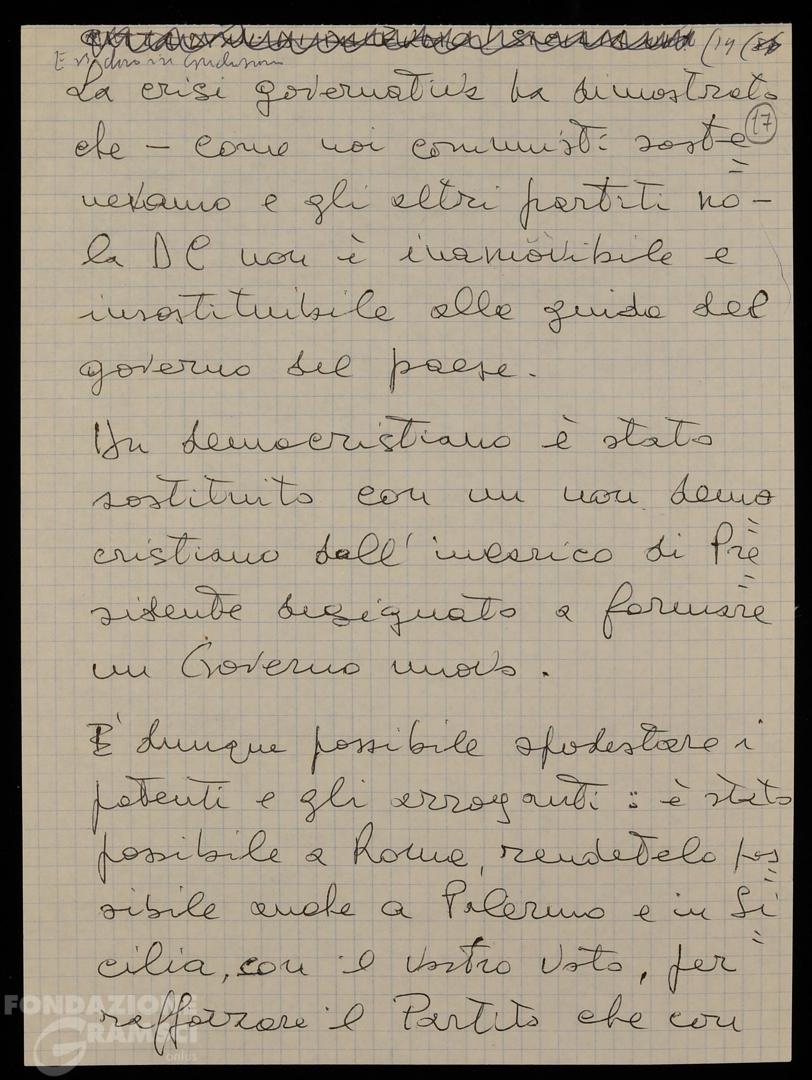 (14
E
La crisi governativa ha dimostrato
17
che – come noi comunisti soste=
nevamo e gli altri partiti no –
la DC non è inamovibile e
insostituibile alla guida del
governo del paese.
Un democristiano è stato
sostituito con un non demo=
cristiano dall'incarico di Pre=
sidente designato a formare
un Governo nuovo.
È dunque possibile spodestare i
potenti e gli arroganti: è stato
possibile a Roma, rendetelo pos=
sibile anche a Palermo e in Si=
cilia, con il vostro voto, per
rafforzare il Partito che con
FONDAZIONE
GRAMSCI
onlus